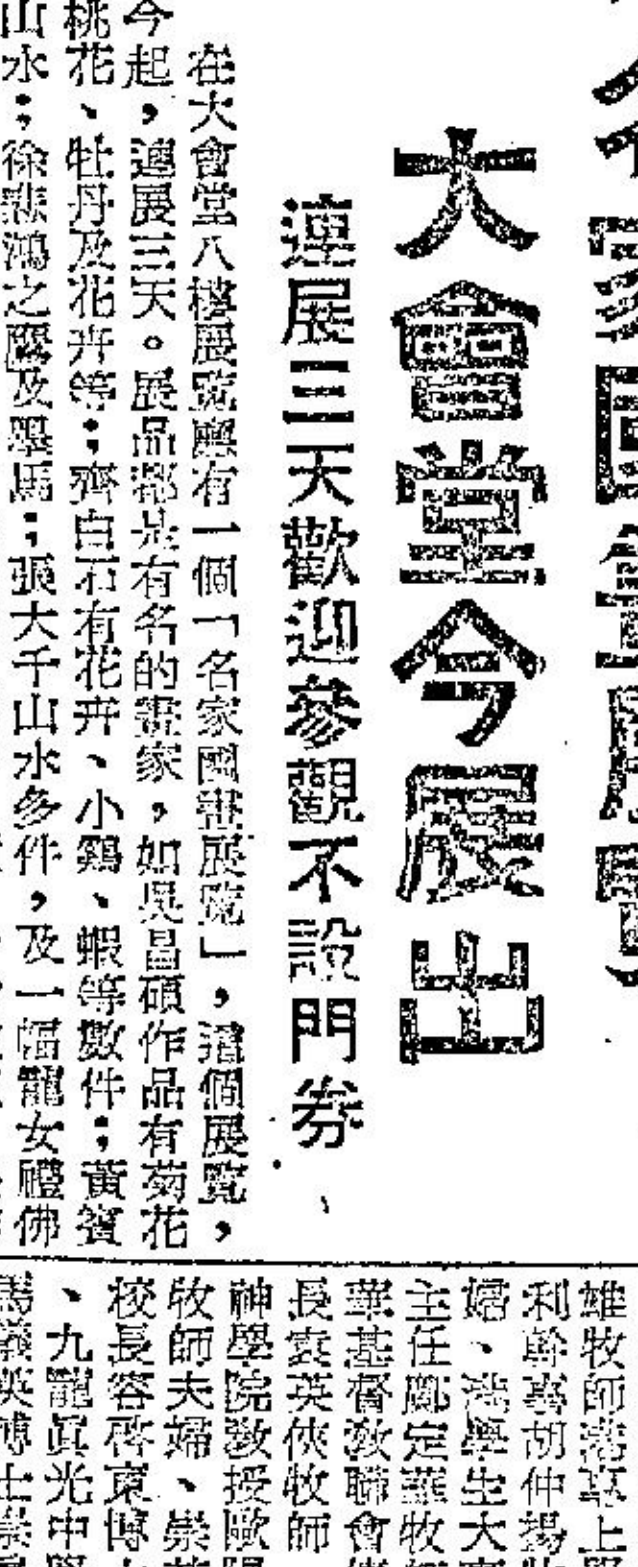 名家國畫展覽
大會堂今展出
連展三天歡迎參觀不設門券
在大會堂八樓展覽廳有一個「名家國畫展覽」，這個展覽，
今起，連展三天。展品都是有名的畫家，如吳昌碩作品有菊花
桃花、牡丹及花卉等；齊白石有花卉、小鷄、蝦等數件；黃賓
山水；徐悲鴻之鷹及墨馬；張大千山水多件，及一幅龍女禮佛
雄牧師
利幹事胡仲揚
、港學生大
主任鄺定華牧
華基督教聯會
長袁英俠牧師
神學院教授歐
牧師夫婦、崇
校長容啓東博
、九龍眞光中學
馬儀英博士崇